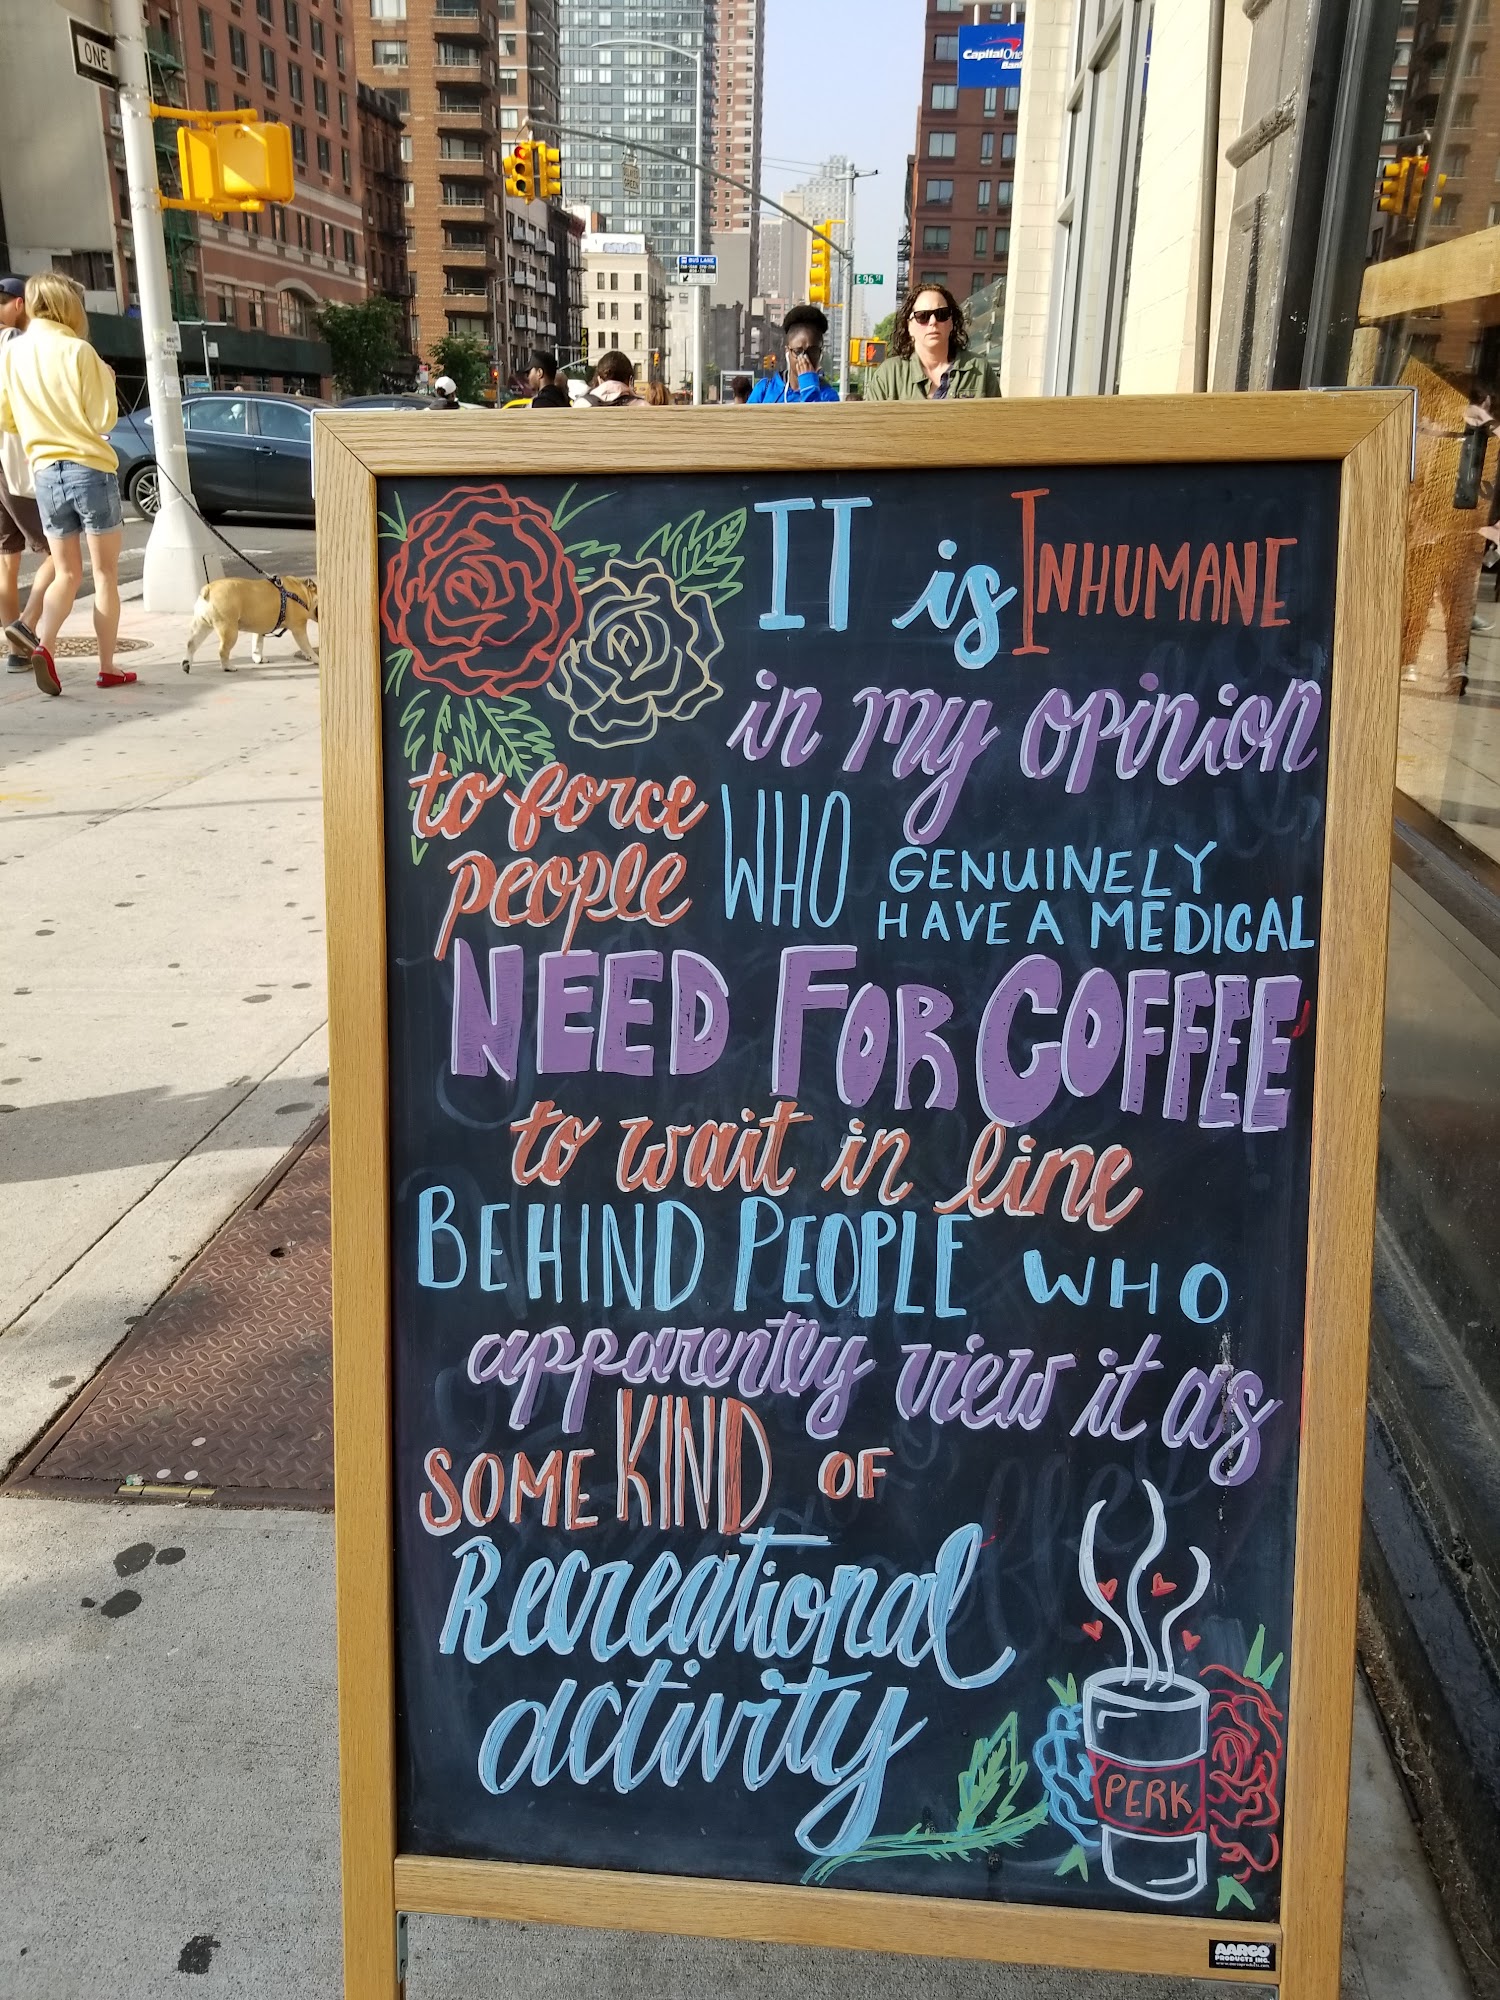 ONE
CapitalOne
Bank
BUS LANE
E 96 ST
IT is INHUMANE
in my opinion
to force
people WHO GENUINELY
HAVE A MEDICAL
NEED FOR COFFEE
to wait in line
BEHIND PEOPLE WHO
apparently view it as
SOME KIND OF
Recreational
activity
PERK
AARCO
PRODUCTS, INC.